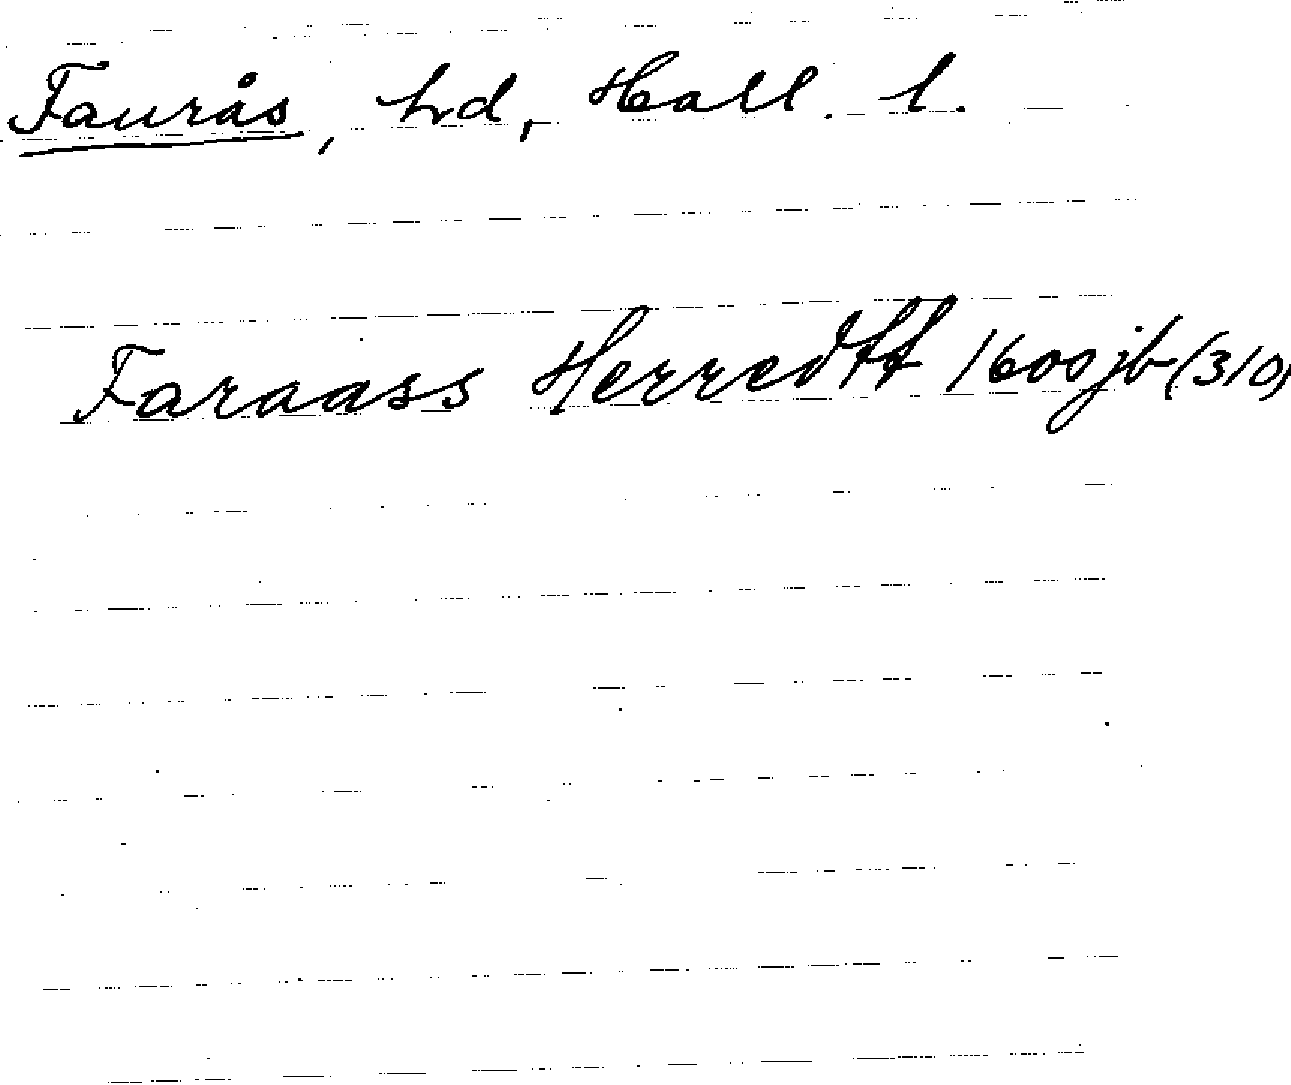 Faurås, hd, Hall. l.
Faraass Herredtt 1600 jb (310)